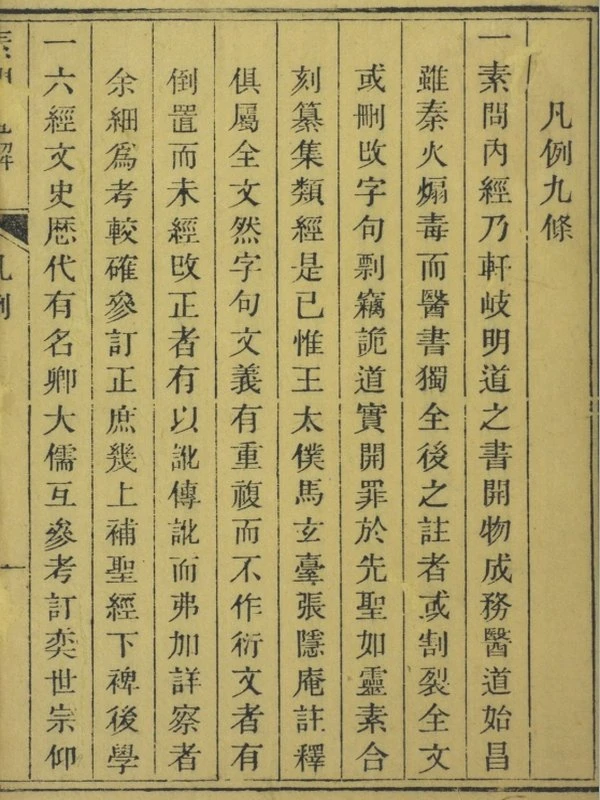 凡例九條
一素問內經乃軒岐明道之書開物成務醫道始昌
雖秦火煽毒而醫書獨全後之註者或割裂全文
或刪改字句剽竊詭道實開罪於先聖如靈素合
刻纂集類經是已惟王太僕馬玄臺張隱庵註釋
俱屬全文然字句文義有重複而不作衍文者有
倒置而未經改正者有以訛傳訛而弗加詳察者
余細爲考較確參訂正庶幾上補聖經下裨後學
一六經文史歷代有名卿大儒互參考訂奕世宗仰